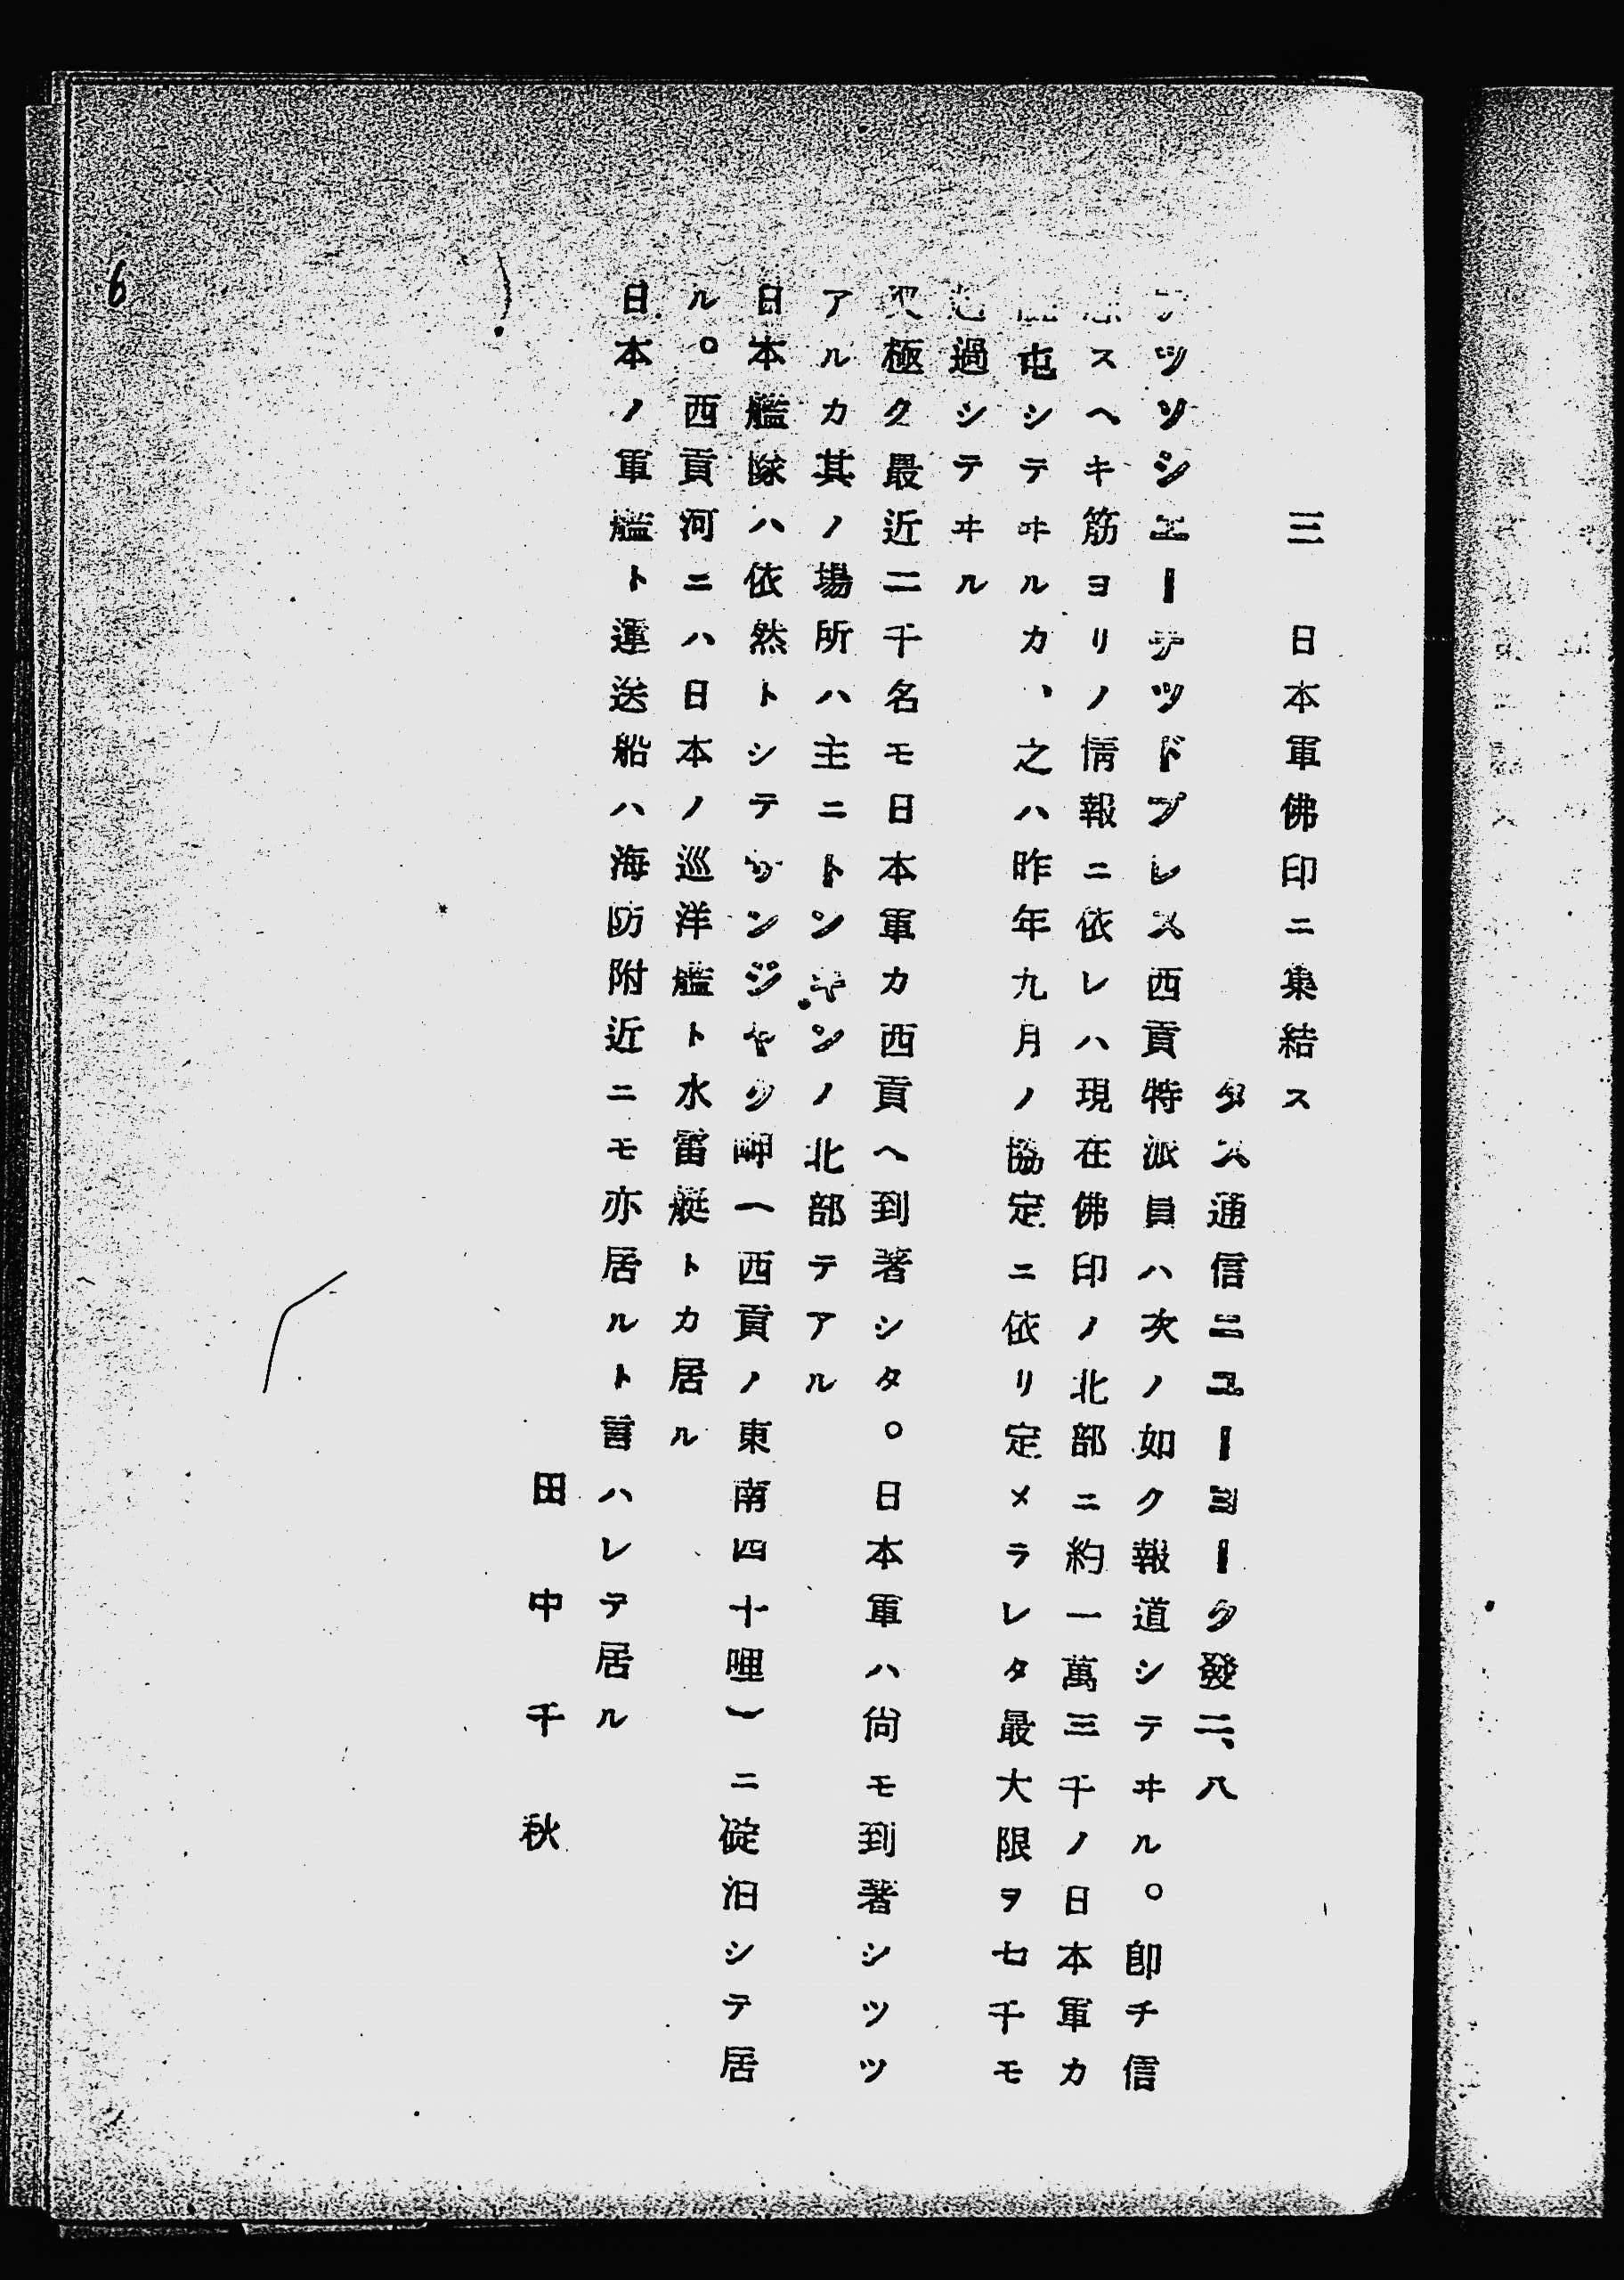 三　日本軍佛印ニ集結ス
タス通信ニユーヨーク發二、八
ツソシエーテツドプレス西貢特派員ハ次ノ如ク報道シテヰル。卽チ信
スヘキ筋ヨリノ情報ニ依レハ現在佛印ノ北部ニ約一萬三千ノ日本軍カ
屯シテヰルカ、之ハ昨年九月ノ協定ニ依リ定メラレタ最大限ヲ七千モ
過シテヰル
極ク最近二千名モ日本軍カ西貢ヘ到著シタ。日本軍ハ尙モ到著シツツ
アルカ其ノ場所ハ主ニトンキンノ北部テアル
日本艦隊ハ依然トシテサンジヤク岬（西貢ノ東南四十哩）ニ碇泊シテ居
ル。西貢河ニハ日本ノ巡洋艦ト水雷艇トカ居ル
日本ノ軍艦ト運送船ハ海防附近ニモ亦居ルト言ハレテ居ル
田中千秋
6